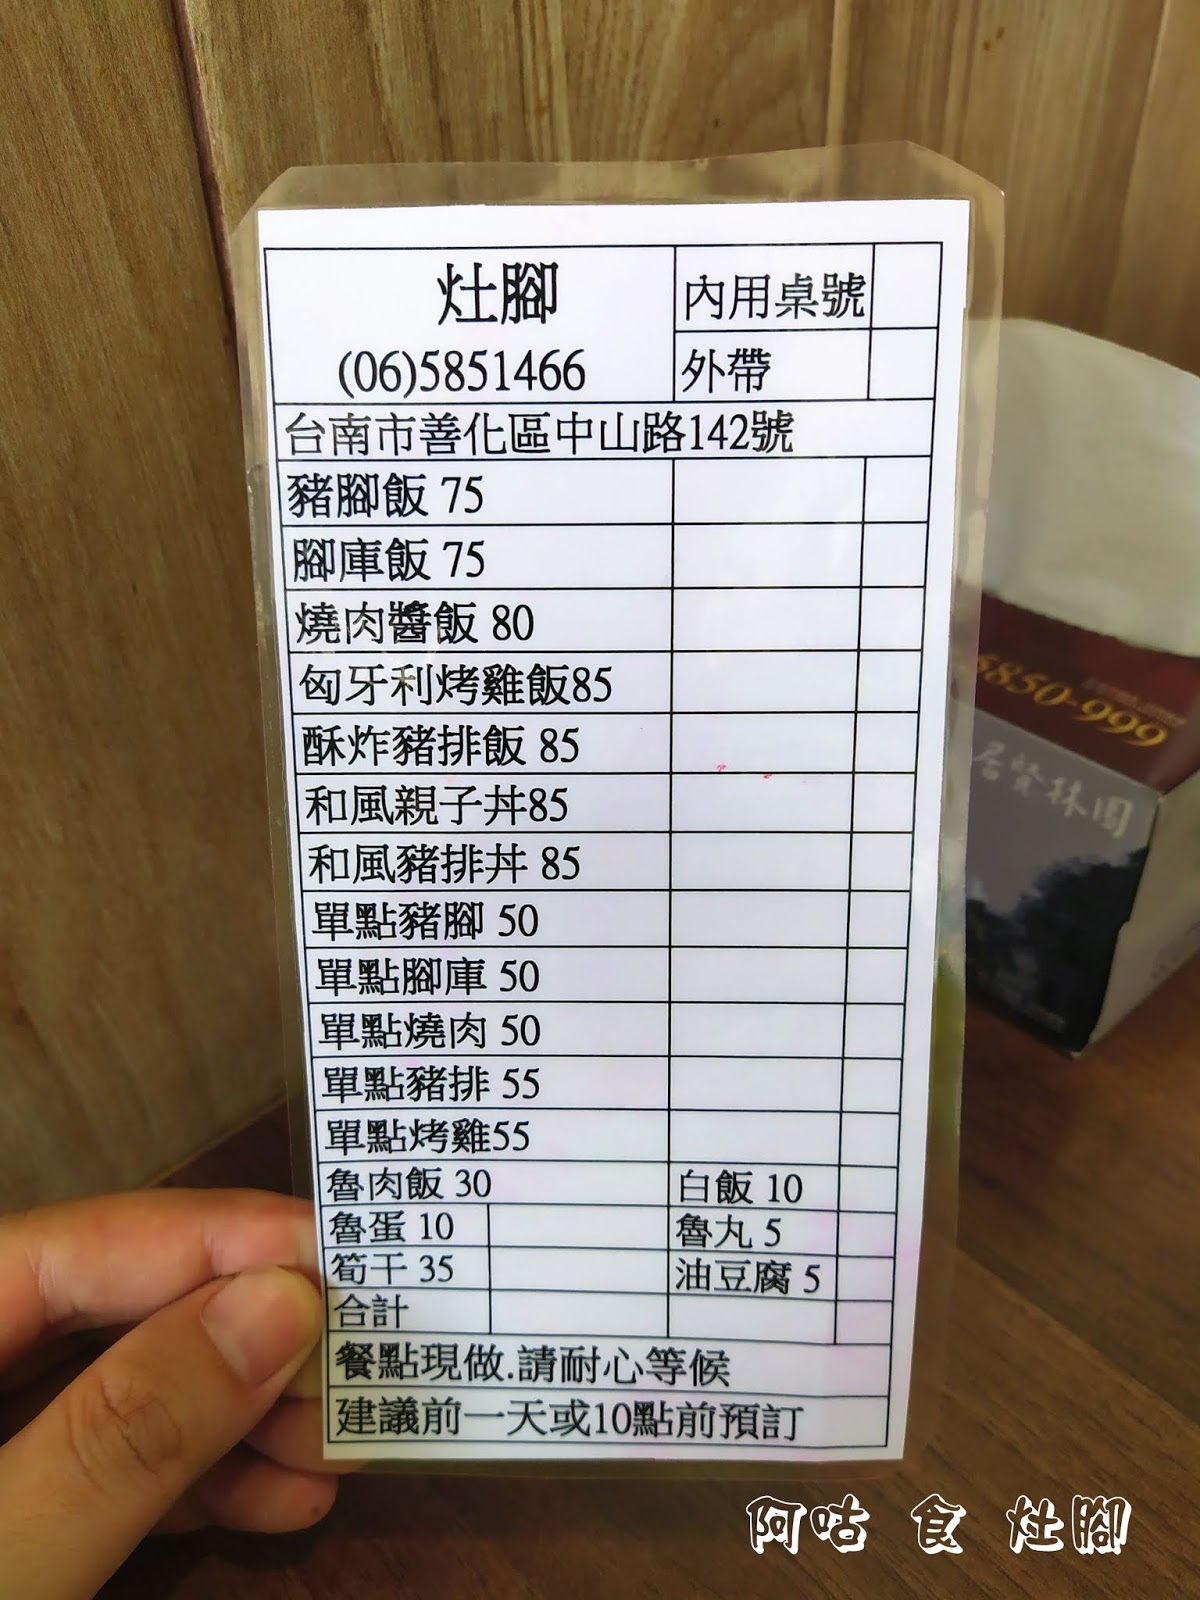 灶腳
(06)5851466
內用桌號
外帶
台南市善化區中山路142號
豬腳飯 75
腳庫飯 75
燒肉醬飯 80
匈牙利烤雞飯85
酥炸豬排飯 85
和風親子丼85
和風豬排丼 85
單點豬腳 50
單點腳庫 50
單點燒肉 50
單點豬排 55
單點烤雞55
魯肉飯 30
白飯 10
魯蛋 10
魯丸 5
筍干 35
油豆腐 5
合計
餐點現做.請耐心等候
建議前一天或10點前預訂
5850-999
居賢林園
阿咕 食 灶腳